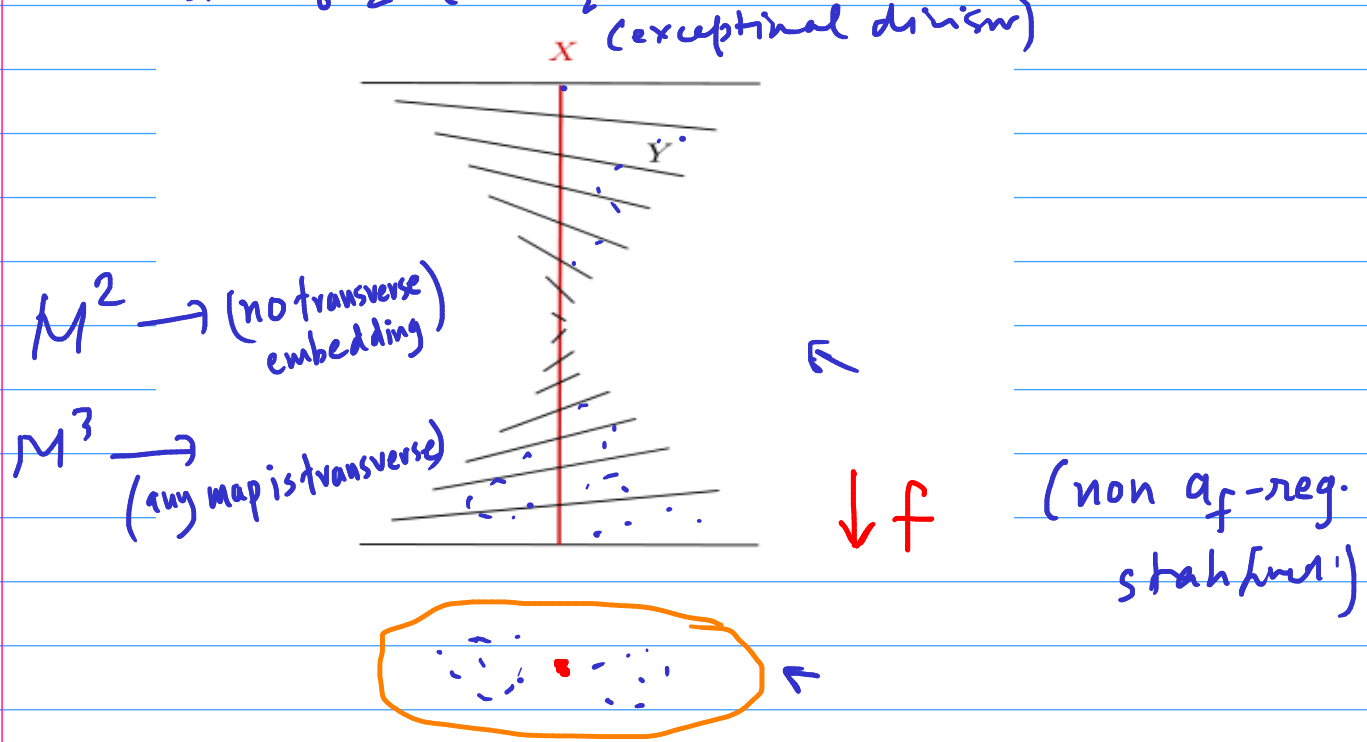 (exceptional divisor)
X
Y
M² → (no transverse
embedding)
M³ →
(any map is transverse)
↓ f
(non a_f-reg.